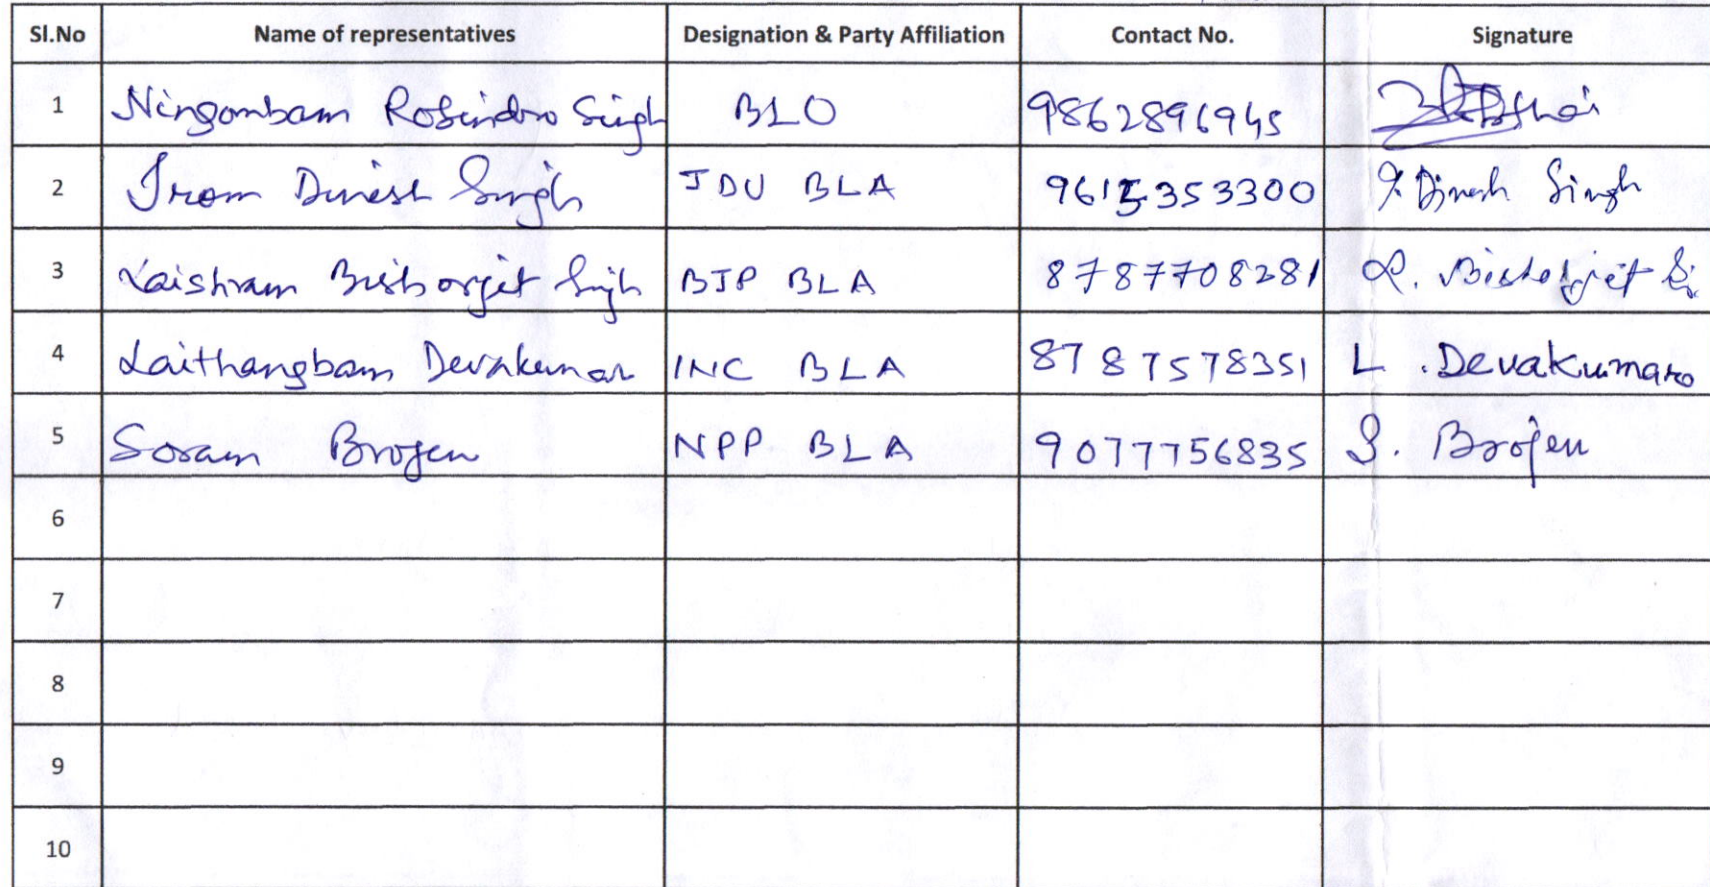 Sl.No Name of representatives Designation & Party Affiliation Contact No. Signature
1 Ningombam Robindro Singh BLO 9862896945
2 Irom Dinesh Singh JDU BLA 9615353300 I. Dinesh Singh
3 Laishram Bishorjit Singh BJP BLA 8787708281 L. Bishorjit Si
4 Laithangbam Devakumar INC BLA 8787578351 L. Devakumar
5 Soram Brojen NPP. BLA 9077756835 S. Brojen
6
7
8
9
10